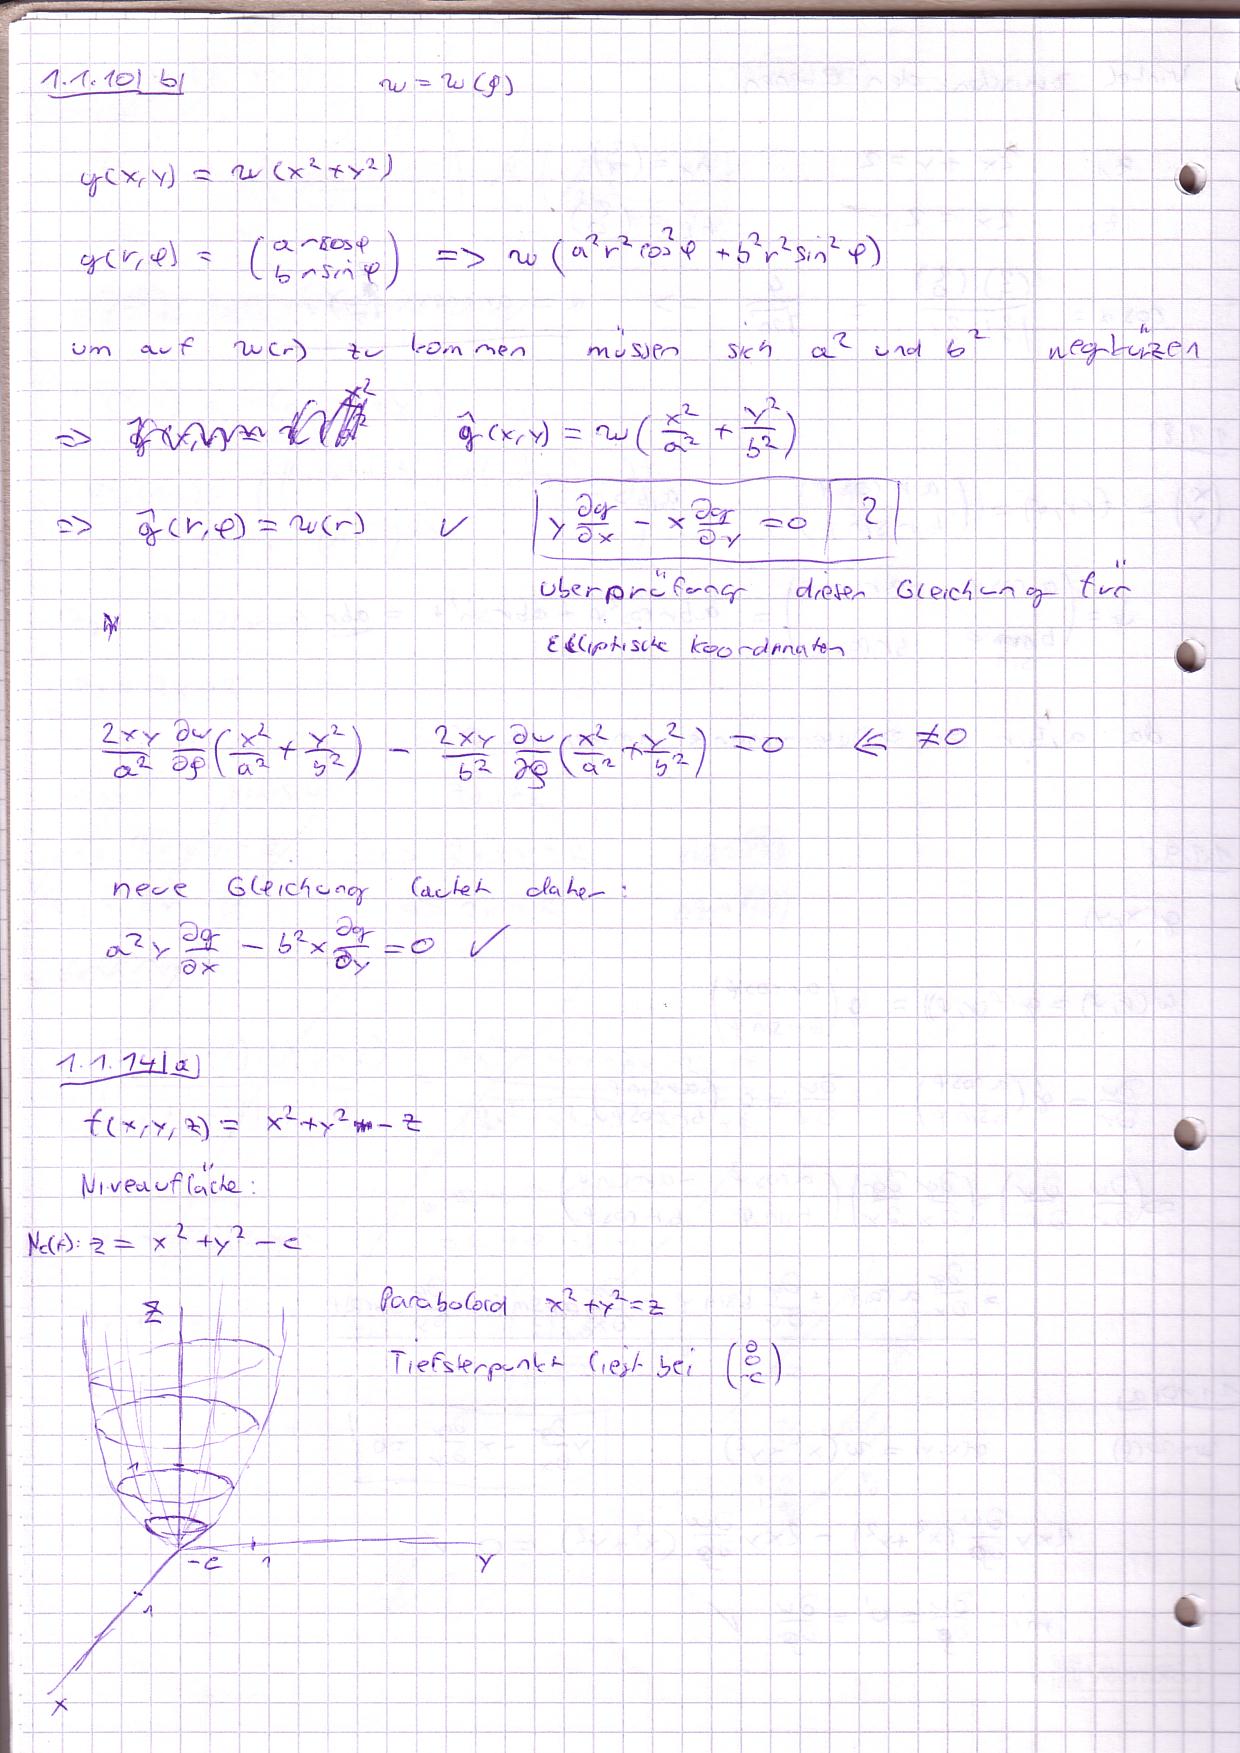 1.1.10) b)
w = w(ρ)
g(x,y) = w(x²+y²)
g(r,φ) = (a r cosφ
b r sinφ) => w(a²r²cos²φ + b²r²sin²φ)
um auf w(r) zu kommen müssen sich a² und b² wegkürzen
=> ĝ(x,y) = w(x²/a² + y²/b²)
=> ĝ(r,φ) = w(r) ✓ y ∂g/∂x - x ∂g/∂y = 0 ?
überprüfung dieser Gleichung für
Elliptische Koordinaten
2xy/a² ∂w/∂ρ (x²/a² + y²/b²) - 2xy/b² ∂w/∂ρ (x²/a² + y²/b²) = 0 ⇐ ≠0
neue Gleichung lautet daher:
a²y ∂g/∂x - b²x ∂g/∂y = 0 ✓
1.1.14) a)
f(x,y,z) = x²+y² - z
Niveaufläche:
Nc(f): z = x²+y² - c
Paraboloid x²+y²=z
Tiefsterpunkt liegt bei (0
0
-c)
z
1
-c
1
y
1
x